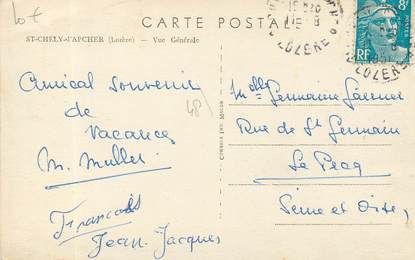 10€
CARTE POSTALE
8F
RF
LOZERE
LOZERE
ST-CHELY-d'APCHER (Lozère) — Vue Générale
48
Amical Souvenir
de
Vacances
M. Muller
Francois
Jean. Jacques
Melle Germaine
Rue de St Germain
Le Pecq
Seine et Oise